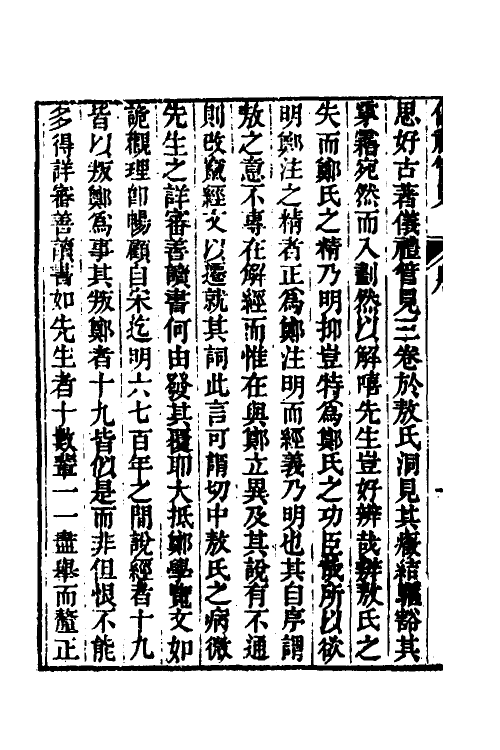 思好古著儀禮管見三卷於敖氏洞見其癥結驅豁其
雺霧宛然而入劃然以解嘻先生豈好辨哉辨敖氏之
失而鄭氏之精乃明抑豈特爲鄭氏之功臣哉所以欲
明鄭注之精者正爲鄭注明而經義乃明也其自序謂
敖之意不專在解經而惟在與鄭立異及其說有不通
則改竄經文以遷就其詞此言可謂切中敖氏之病微
先生之詳審善讀書何由發其覆耶大抵鄭學覽文如
詭觀理卽暢顧自宋迄明六七百年之間說經者十九
皆以叛鄭爲事其叛鄭者十九皆似是而非但恨不能
多得詳審善讀書如先生者十數輩一一盡舉而釐正